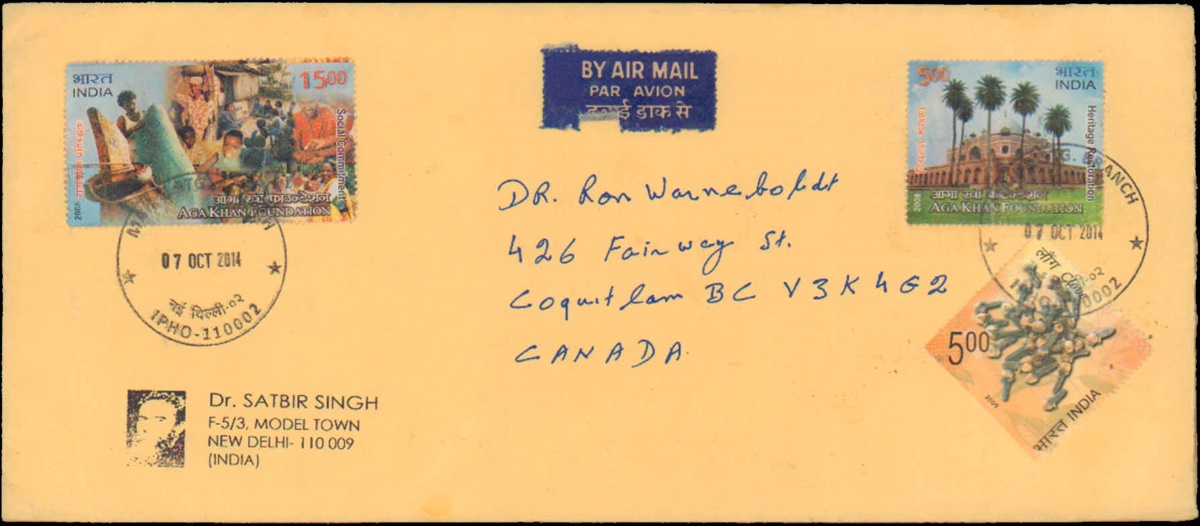 भारत
INDIA
15.00
Social Commitment
2008
आगा ख़ाँ फाउन्डेशन
AGA KHAN FOUNDATION
07 OCT 2014
नई दिल्ली-०२
IPHO-110002
BY AIR MAIL
PAR AVION
डाक से
5.00
भारत
INDIA
Heritage Restoration
2008
आगा ख़ाँ फाउन्डेशन
AGA KHAN FOUNDATION
BRANCH
07 OCT 2014
DR. Ron Warneboldt
426 Fairway St.
Coquitlam BC V3K 4G2
CANADA
लौंग Clove
5.00
2009
भारत INDIA
Dr. SATBIR SINGH
F-5/3, MODEL TOWN
NEW DELHI- 110 009
(INDIA)